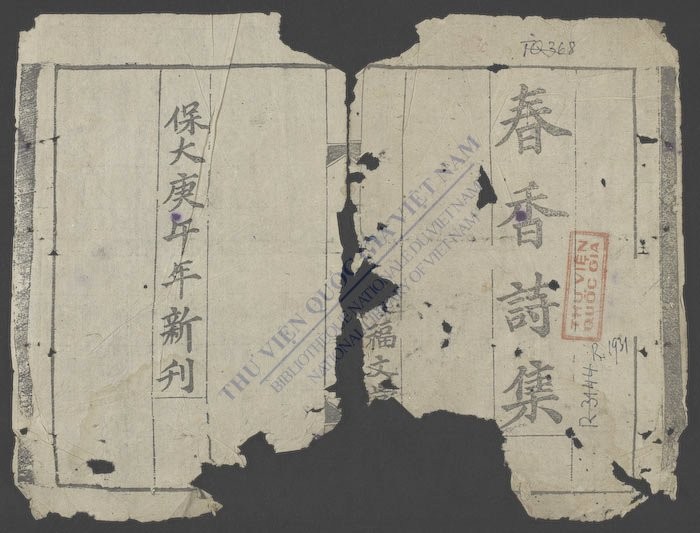 368
春香詩集
THƯ VIỆN
QUỐC GIA
1931
福文
保大庚午年新刊
THƯ VIỆN QUỐC GIA VIỆT NAM
BIBLIOTHÈQUE NATIONALE DU VIETNAM
NATIONAL LIBRARY OF VIETNAM